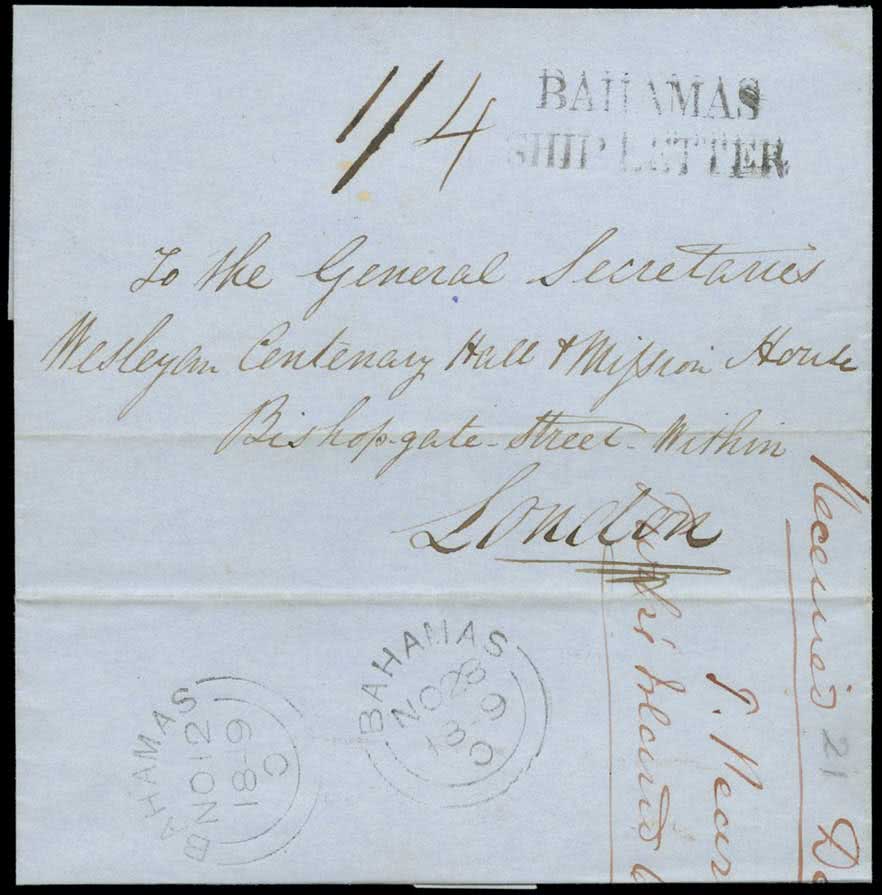 1/4
BAHAMAS
SHIP LETTER
To the General Secretaries
Wesleyan Centenary Hall & Mission House
Bishop-gate-Street-Within
London
BAHAMAS
NO 28
C
BAHAMAS
NO 12
C
Received
21
Island